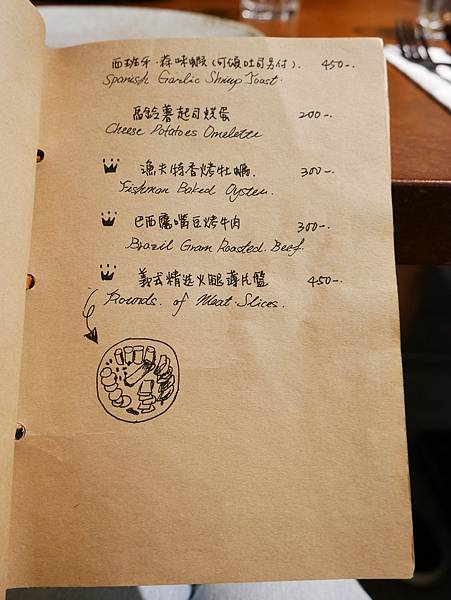 西班牙蒜味蝦(可頌吐司另付). 450-.
Spanish Garlic Shrimp Toast.
馬鈴薯起司烘蛋 200-.
Cheese Potatoes Omelette
漁夫特香烤牡蠣. 300-.
Fishman Baked Oyster.
巴西鷹嘴豆烤牛肉 300-.
Brazil Gram Roasted. Beef.
義式精選火腿薄片盤 450-.
Rounds. of Meat Slices.